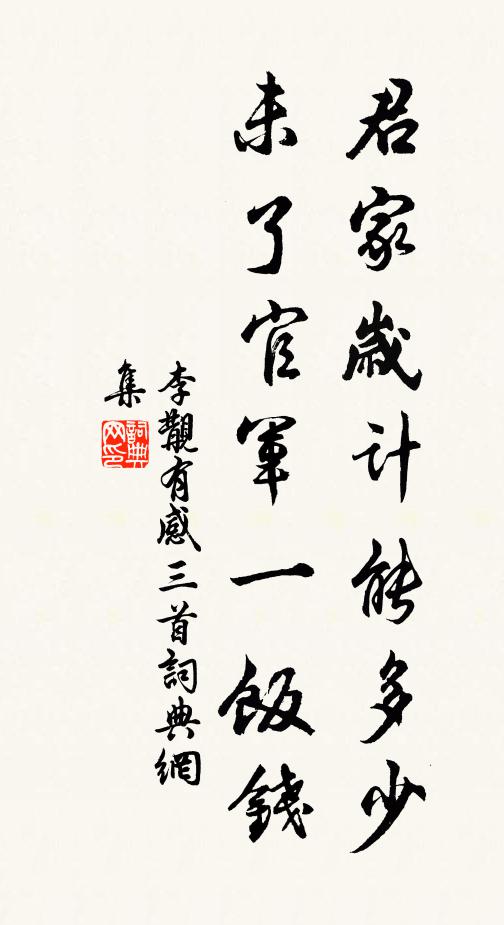 君家歲计能多少
未了官軍一飯錢
李觀有感三首詞典網
集
詞典
网印